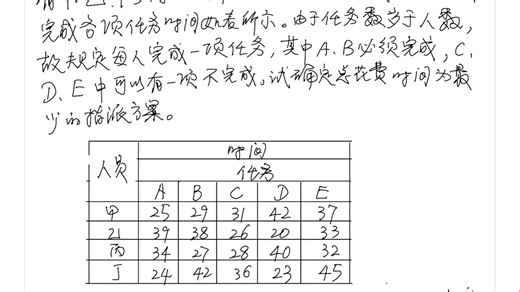 完成各项任务时间如表所示。由于任务数多于人数,
故规定每人完成一项任务,其中A、B必须完成,C、
D、E中可以有一项不完成。试确定总花费时间为最
少的指派方案。
人员 时间
任务
A B C D E
甲 25 29 31 42 37
乙 39 38 26 20 33
丙 34 27 28 40 32
丁 24 42 36 23 45